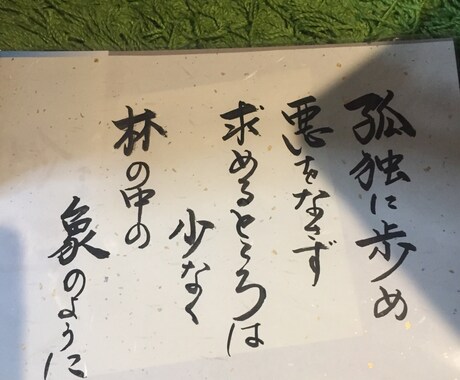 孤独に歩め
悪をなさず
求めるところは
少なく
林の中の
象のように